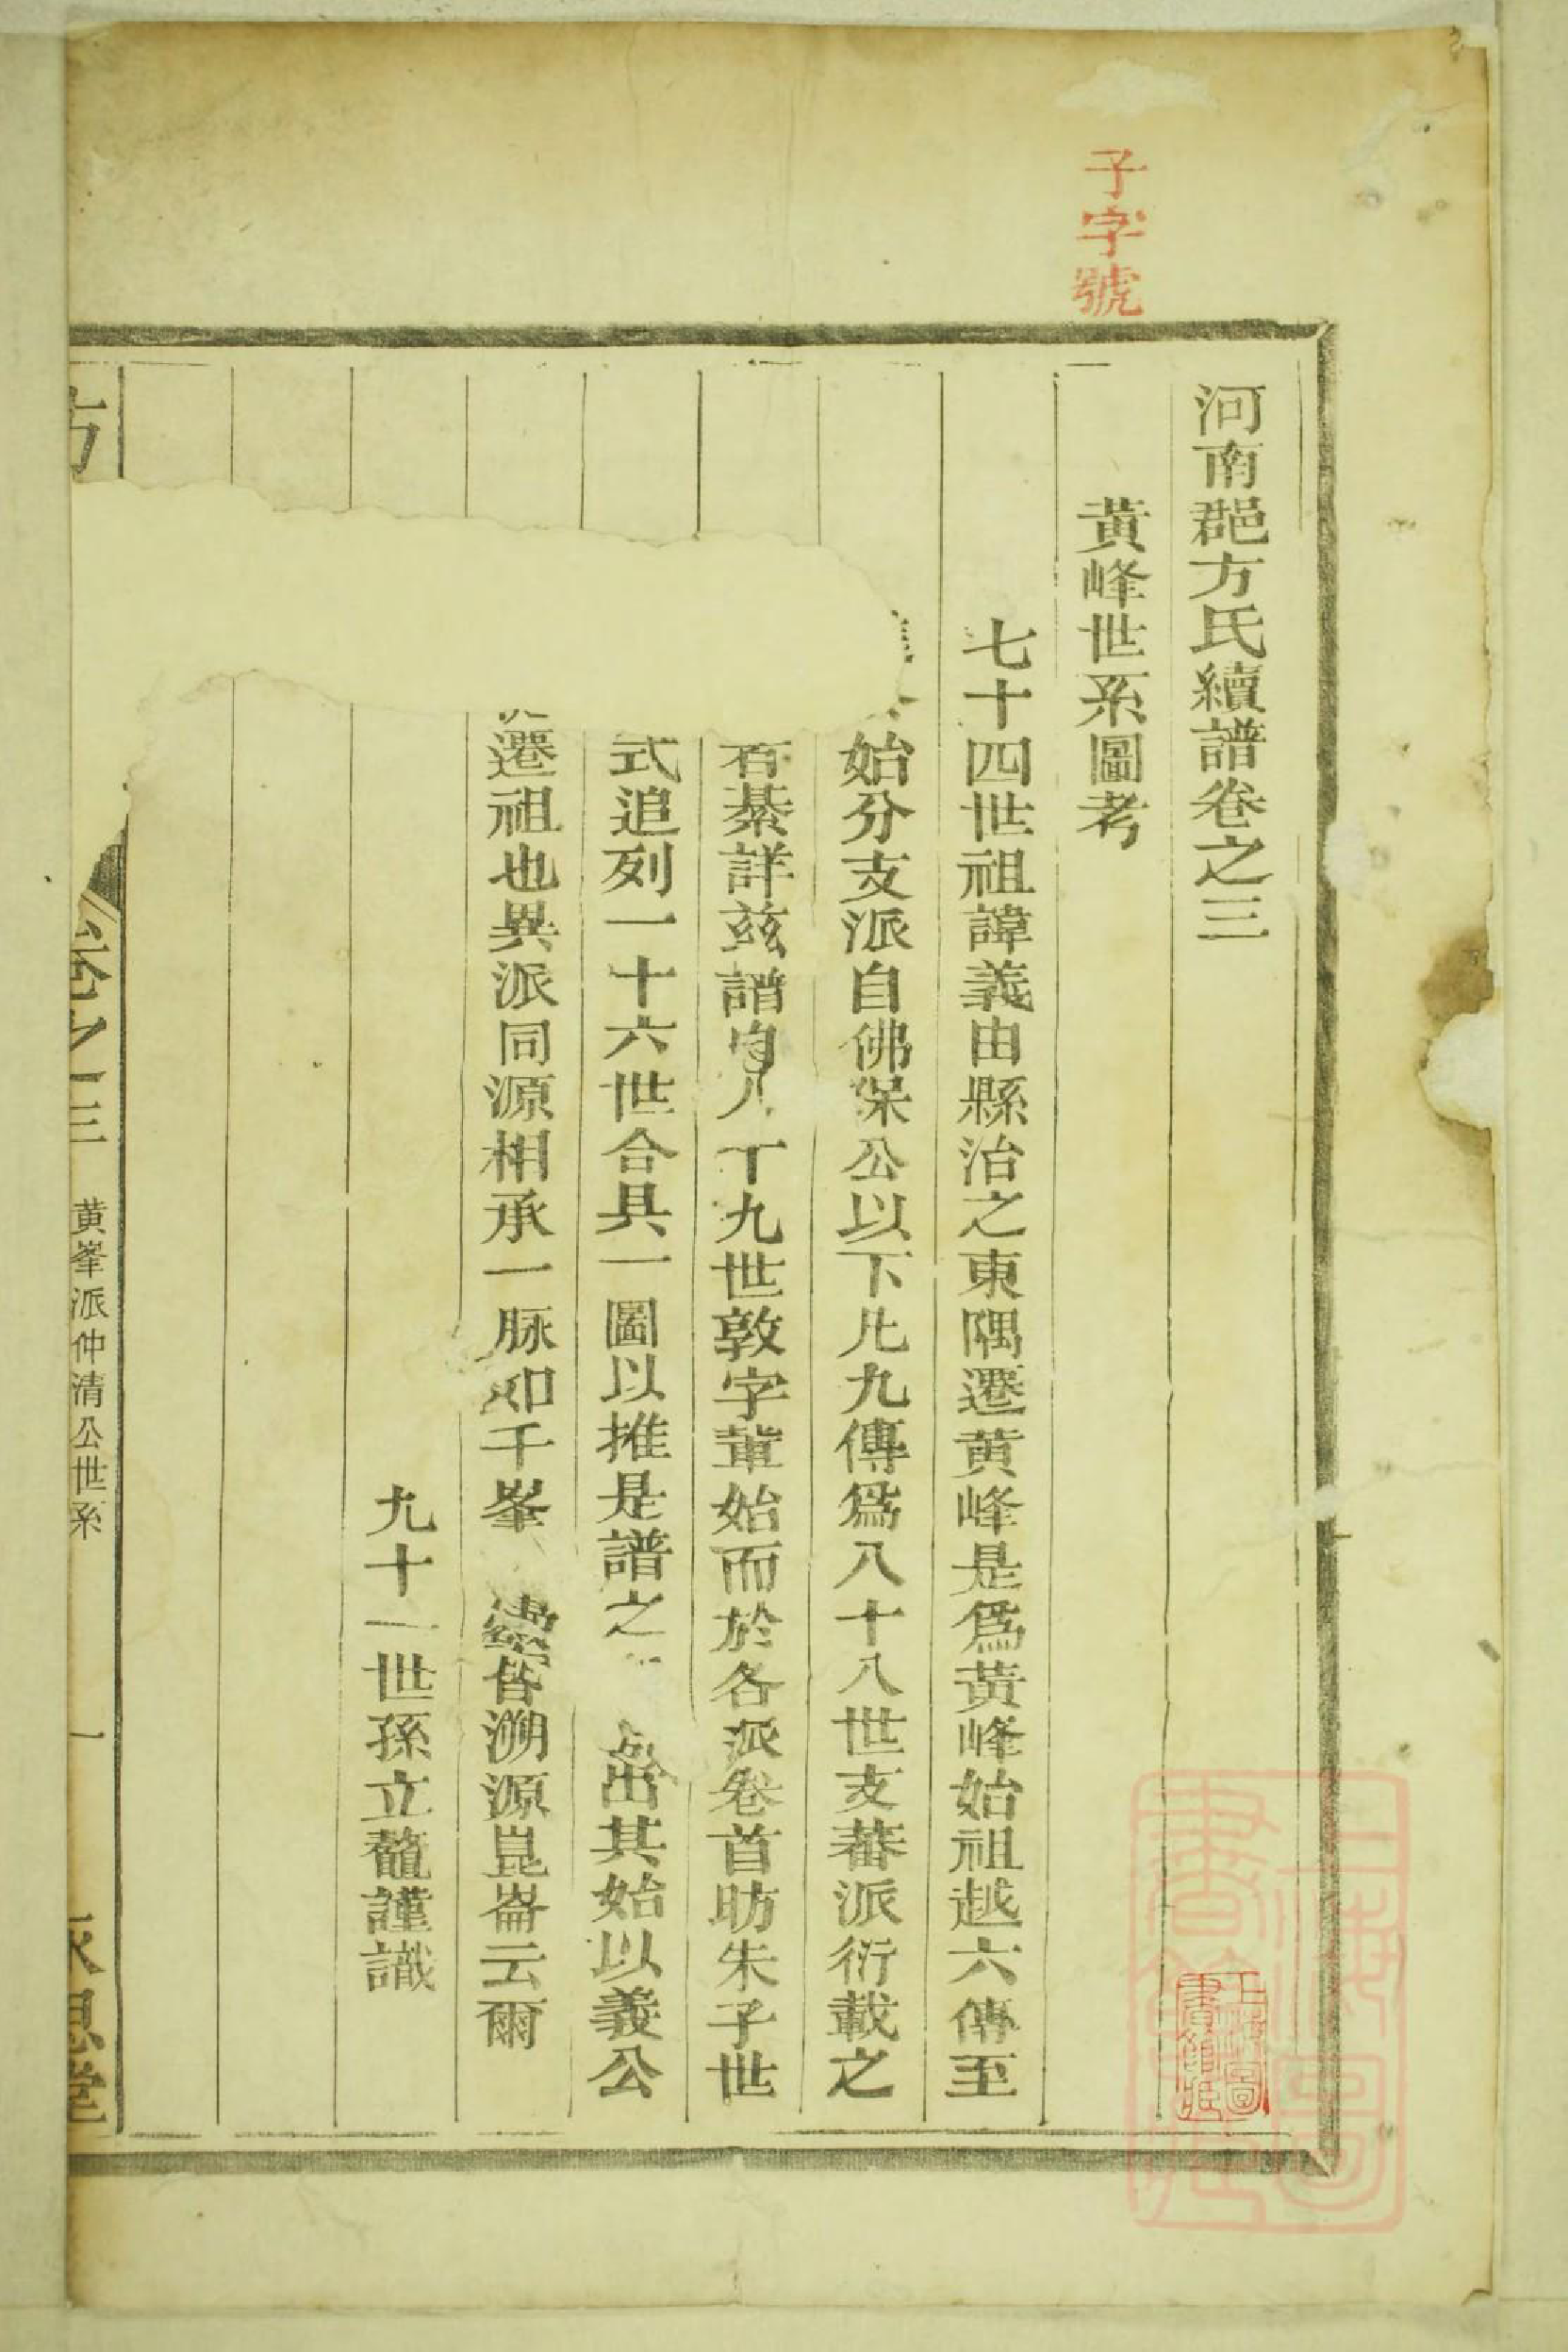 子字號
河南郡方氏續譜卷之三
黃峰世系圖考
七十四世祖諱義由縣治之東隅遷黃峰是爲黃峰始祖越六傳至
始分支派自佛保公以下凡九傳爲八十八世支蕃派衍載之
綦詳玆譜自八十九世敦字輩始而於各派卷首昉朱子世
式追列一十六世合具一圖以推是譜之出其始以義公
遷祖也異派同源相承一脉如千峯皆溯源崑崙云爾
九十一世孫立鼇謹識
方
卷之三
黃峯派仲清公世系
一
永思堂
上海圖書館藏
上海圖書館藏